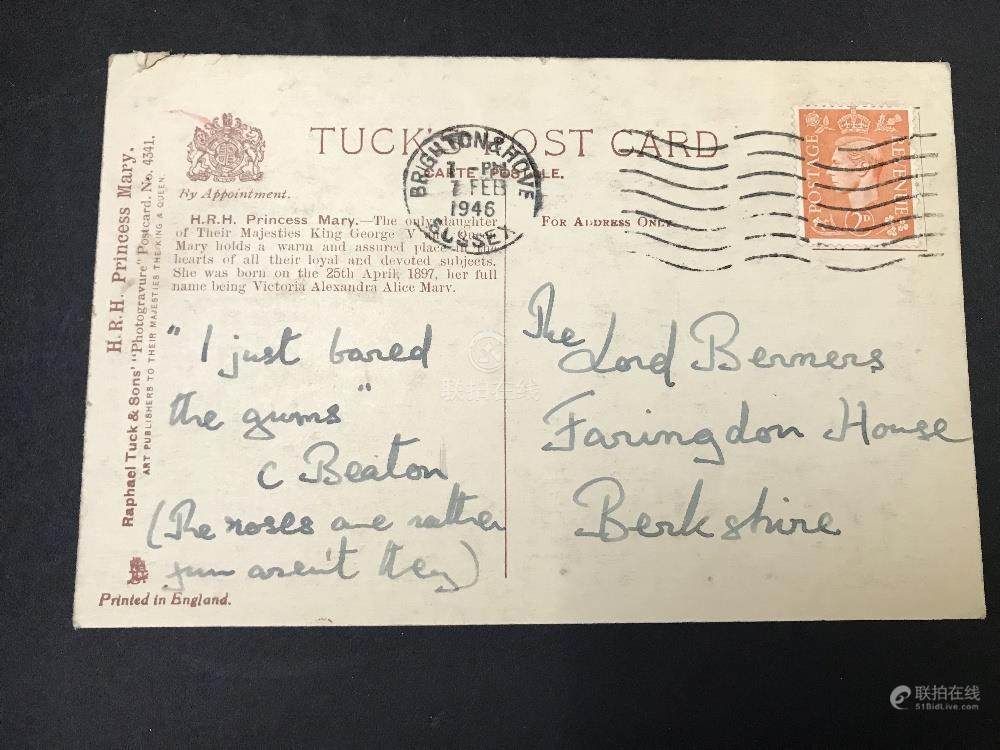 TUCK'S POST CARD
CARTE POSTALE.
By Appointment.
H.R.H. Princess Mary.—The only daughter
of Their Majesties King George V
Mary holds a warm and assured place in the
hearts of all their loyal and devoted subjects.
She was born on the 25th April, 1897, her full
name being Victoria Alexandra Alice Mary.
FOR ADDRESS ONLY
BRIGHTON & HOVE
PM
7 FEB
1946
SUSSEX
POSTAGE
REVENUE
2D
H.R.H. Princess Mary.
Raphael Tuck & Sons' "Photogravure" Postcard. No. 4341.
ART PUBLISHERS TO THEIR MAJESTIES THE KING & QUEEN.
"I just bared
the gums"
C Beaton
(The roses are rather
fun aren't they)
Printed in England.
The Lord Berners
Faringdon House
Berkshire
联拍在线
联拍在线
51BidLive.com